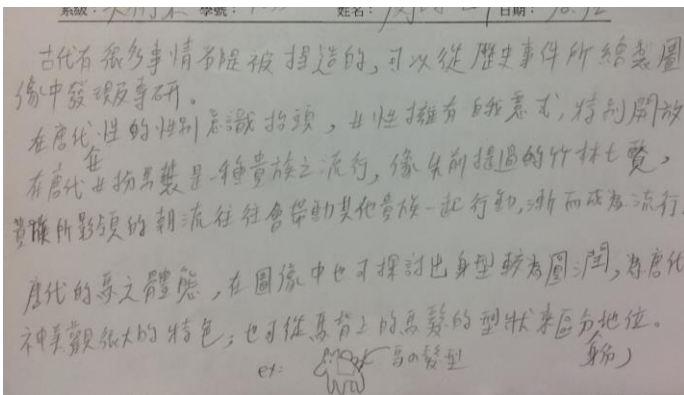 系級: 學號: 姓名: 日期:
古代有很多事情都是被捏造的,可以從歷史事件所繪製圖
像中發現專研。
在唐代女性的性別意識抬頭,女性擁有自我意式,特別開放
在唐代女扮男裝是一種貴族之流行,像先前提過的竹林七賢,
貴族所影領的朝流往往會帶動其他貴族一起行動,漸而成為流行
唐代的馬之體態,在圖像中也可探討出身型較為圓潤,為唐代
神美觀很大的特色;也可從馬背上的馬鬃的型狀來區分地位。
ex: 馬の髮型 身份)